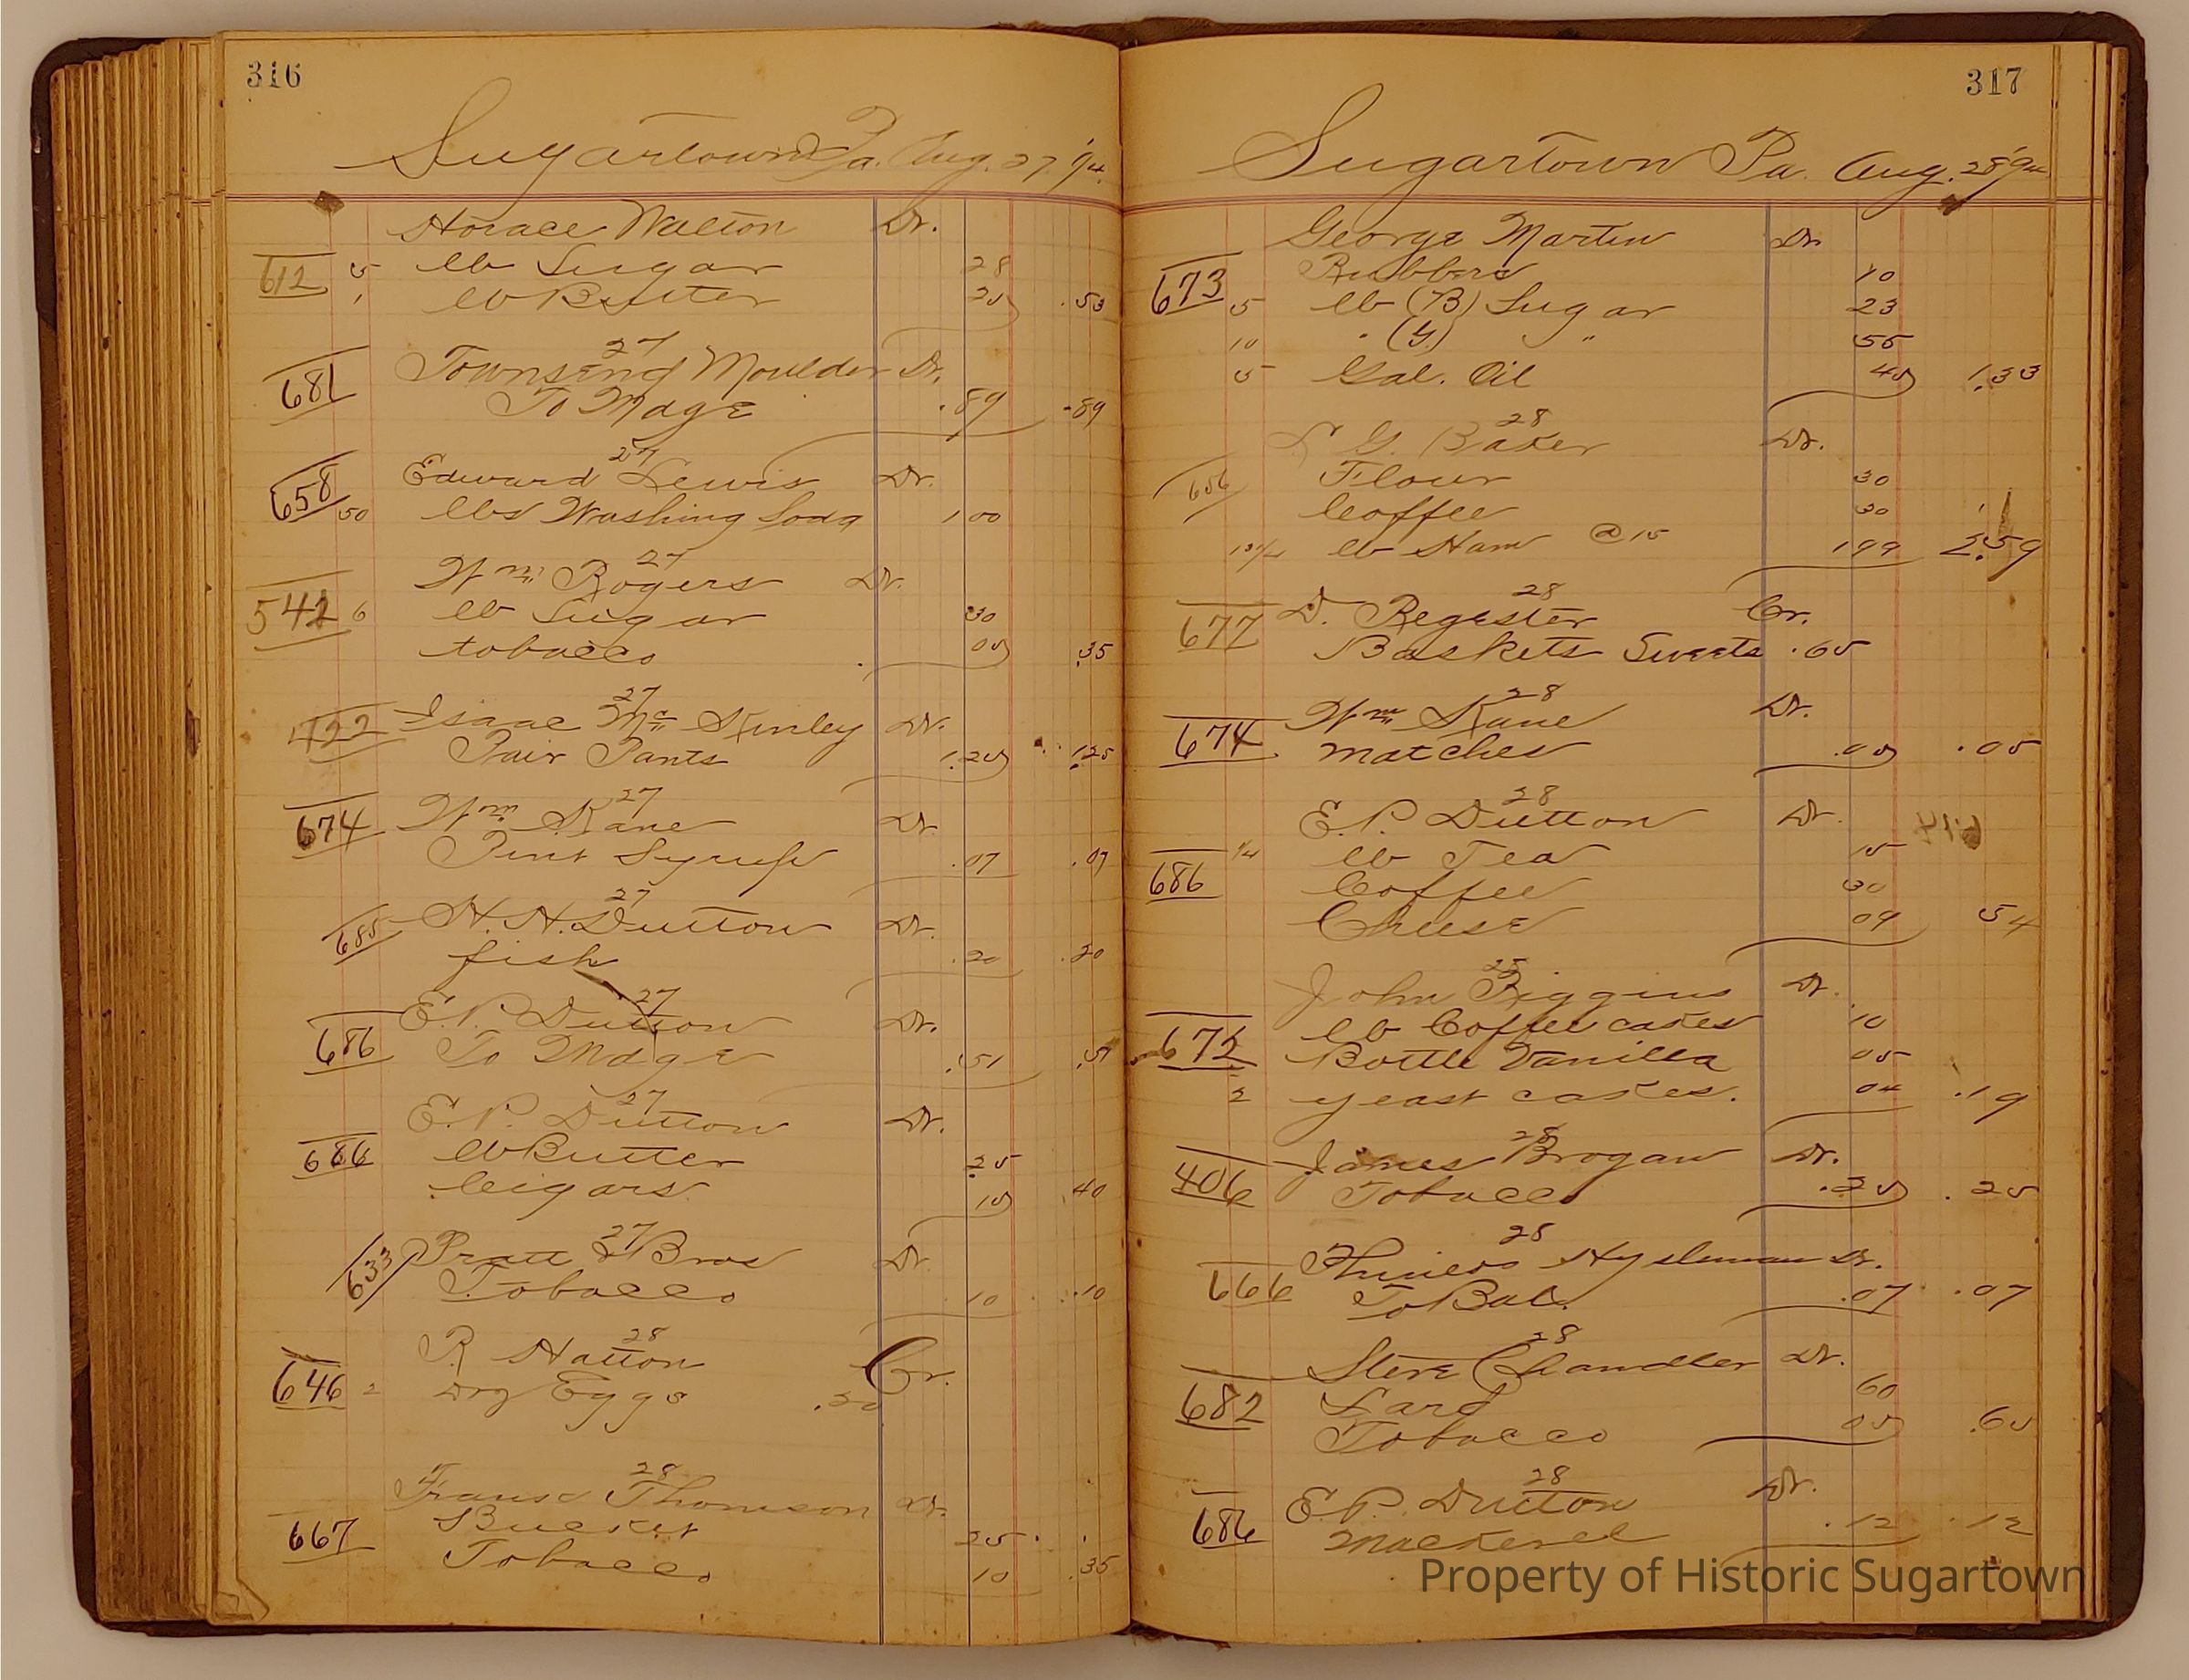 316
Sugartown Pa. Aug. 27 '94.
Horace Walton Dr.
612 5 lb Sugar 28
1 lb Butter 25 .53
27
681 Townsend Moulder Dr.
To Mdge .89 .89
27
658 Edward Lewis Dr.
50 lbs Washing Soda 1 00
27
Wm Rogers Dr.
542 6 lb Sugar 30
tobacco 05 .35
27
422 Isaac Mc Kinley Dr.
Pair Pants 1.25 1.25
27
674 Wm Kane Dr.
Pint Syrup .07 .07
27
685 H. H. Dutton Dr.
fish .20 .20
27
686 E. P. Dutton Dr.
To Mdge .51 .51
27
E. P. Dutton Dr.
686 lb Butter 25
Cigars 15 .40
27
633 Pratt & Bros Dr.
Tobacco 10 .10
28
R Hatton Cr.
646 2 Doz Eggs .30
28
Thomson Dr.
667 Bucket 25
Tobacco 10 .35
317
Sugartown Pa. Aug. 28 '94
George Martin Dr.
673 Rubbers 10
5 lb (B) Sugar 23
10 " (G) " 55
5 Gal. Oil 45 1.33
28
L G. Baker Dr.
656 Flour 30
Coffee 30
lb Ham @ 15 199 2.59
28
677 D. Register Cr.
Baskets Sweets .65
28
674 Wm Kane Dr.
matches .05 .05
28
E. P. Dutton Dr.
1/4 lb Tea 15
686 Coffee 30
Cheese 09 54
28
John Riggins Dr.
672 lb Coffee cakes 10
Bottle Vanilla 05
2 yeast cakes. 04 .19
28
406 James Brogan Dr.
Tobacco .25 .25
28
Dr.
666 To Bal. .07 .07
28
Steve Chandler Dr.
682 Lard 60
Tobacco 05 .65
28
686 E. P. Dutton Dr.
Mackerel .12 .12
Property of Historic Sugartown